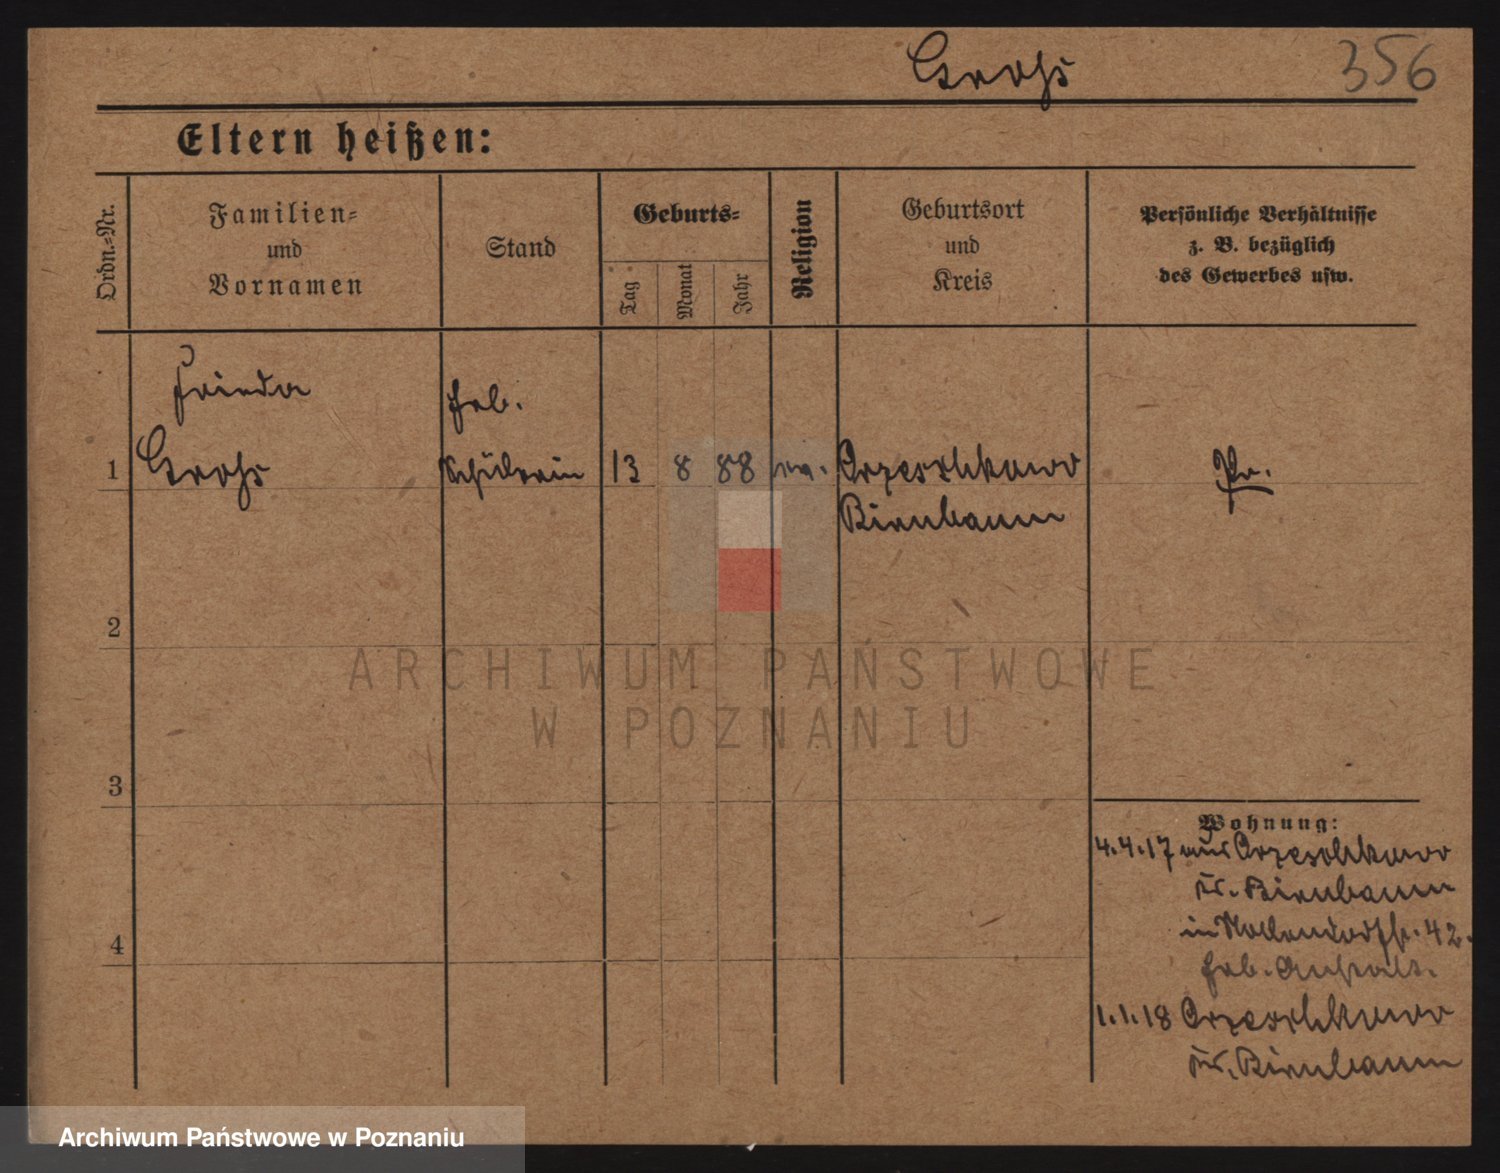 Krohs 356
Eltern heißen:
Ordn.=Nr.
Familien=
und
Vornamen
Stand
Geburts=
Tag
Monat
Jahr
Religion
Geburtsort
und
Kreis
Persönliche Verhältnisse
z. B. bezüglich
des Gewerbes usw.
Frieda
Heb.
1 Krohs Schülerin 13 8 88 ev. Orzeschkowo
Birnbaum
Pr.
2
3
4
Wohnung:
4.4.17 aus Orzeschkowo
Kr. Birnbaum
in Nollendorfstr. 42.
Heb. Anstalt.
1.1.18 Orzeschkowo
Kr. Birnbaum
ARCHIWUM PAŃSTWOWE
W POZNANIU
Archiwum Państwowe w Poznaniu